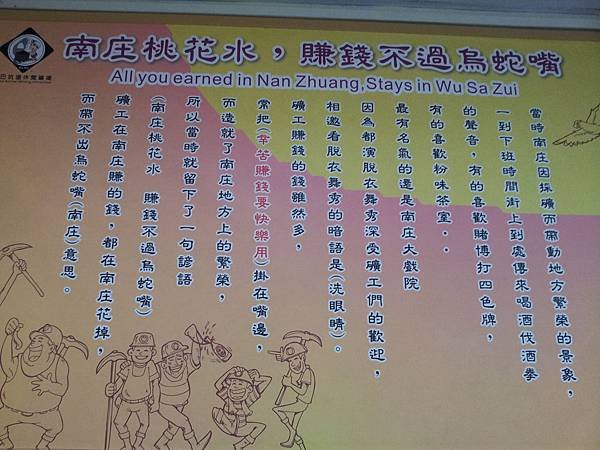 南庄桃花水，賺錢不過烏蛇嘴
All you earned in Nan Zhuang,Stays in Wu Sa Zui
當時南庄因採礦而帶動地方繁榮的景象，
一到下班時間街上到處傳來喝酒伐酒拳
的聲音，有的喜歡賭博打四色牌，
有的喜歡粉味茶室．．
最有名氣的還是南庄大戲院
因為都演脫衣舞秀深受礦工們的歡迎，
相邀看脫衣舞秀的暗語是(洗眼睛)。
礦工賺錢的錢雖然多，
常把(辛苦賺錢要快樂用)掛在嘴邊，
而造就了南庄地方上的繁榮，
所以當時就留下了一句諺語
(南庄桃花水　賺錢不過烏蛇嘴)
礦工在南庄賺的錢，都在南庄花掉，
而帶不出烏蛇嘴(南庄)意思。